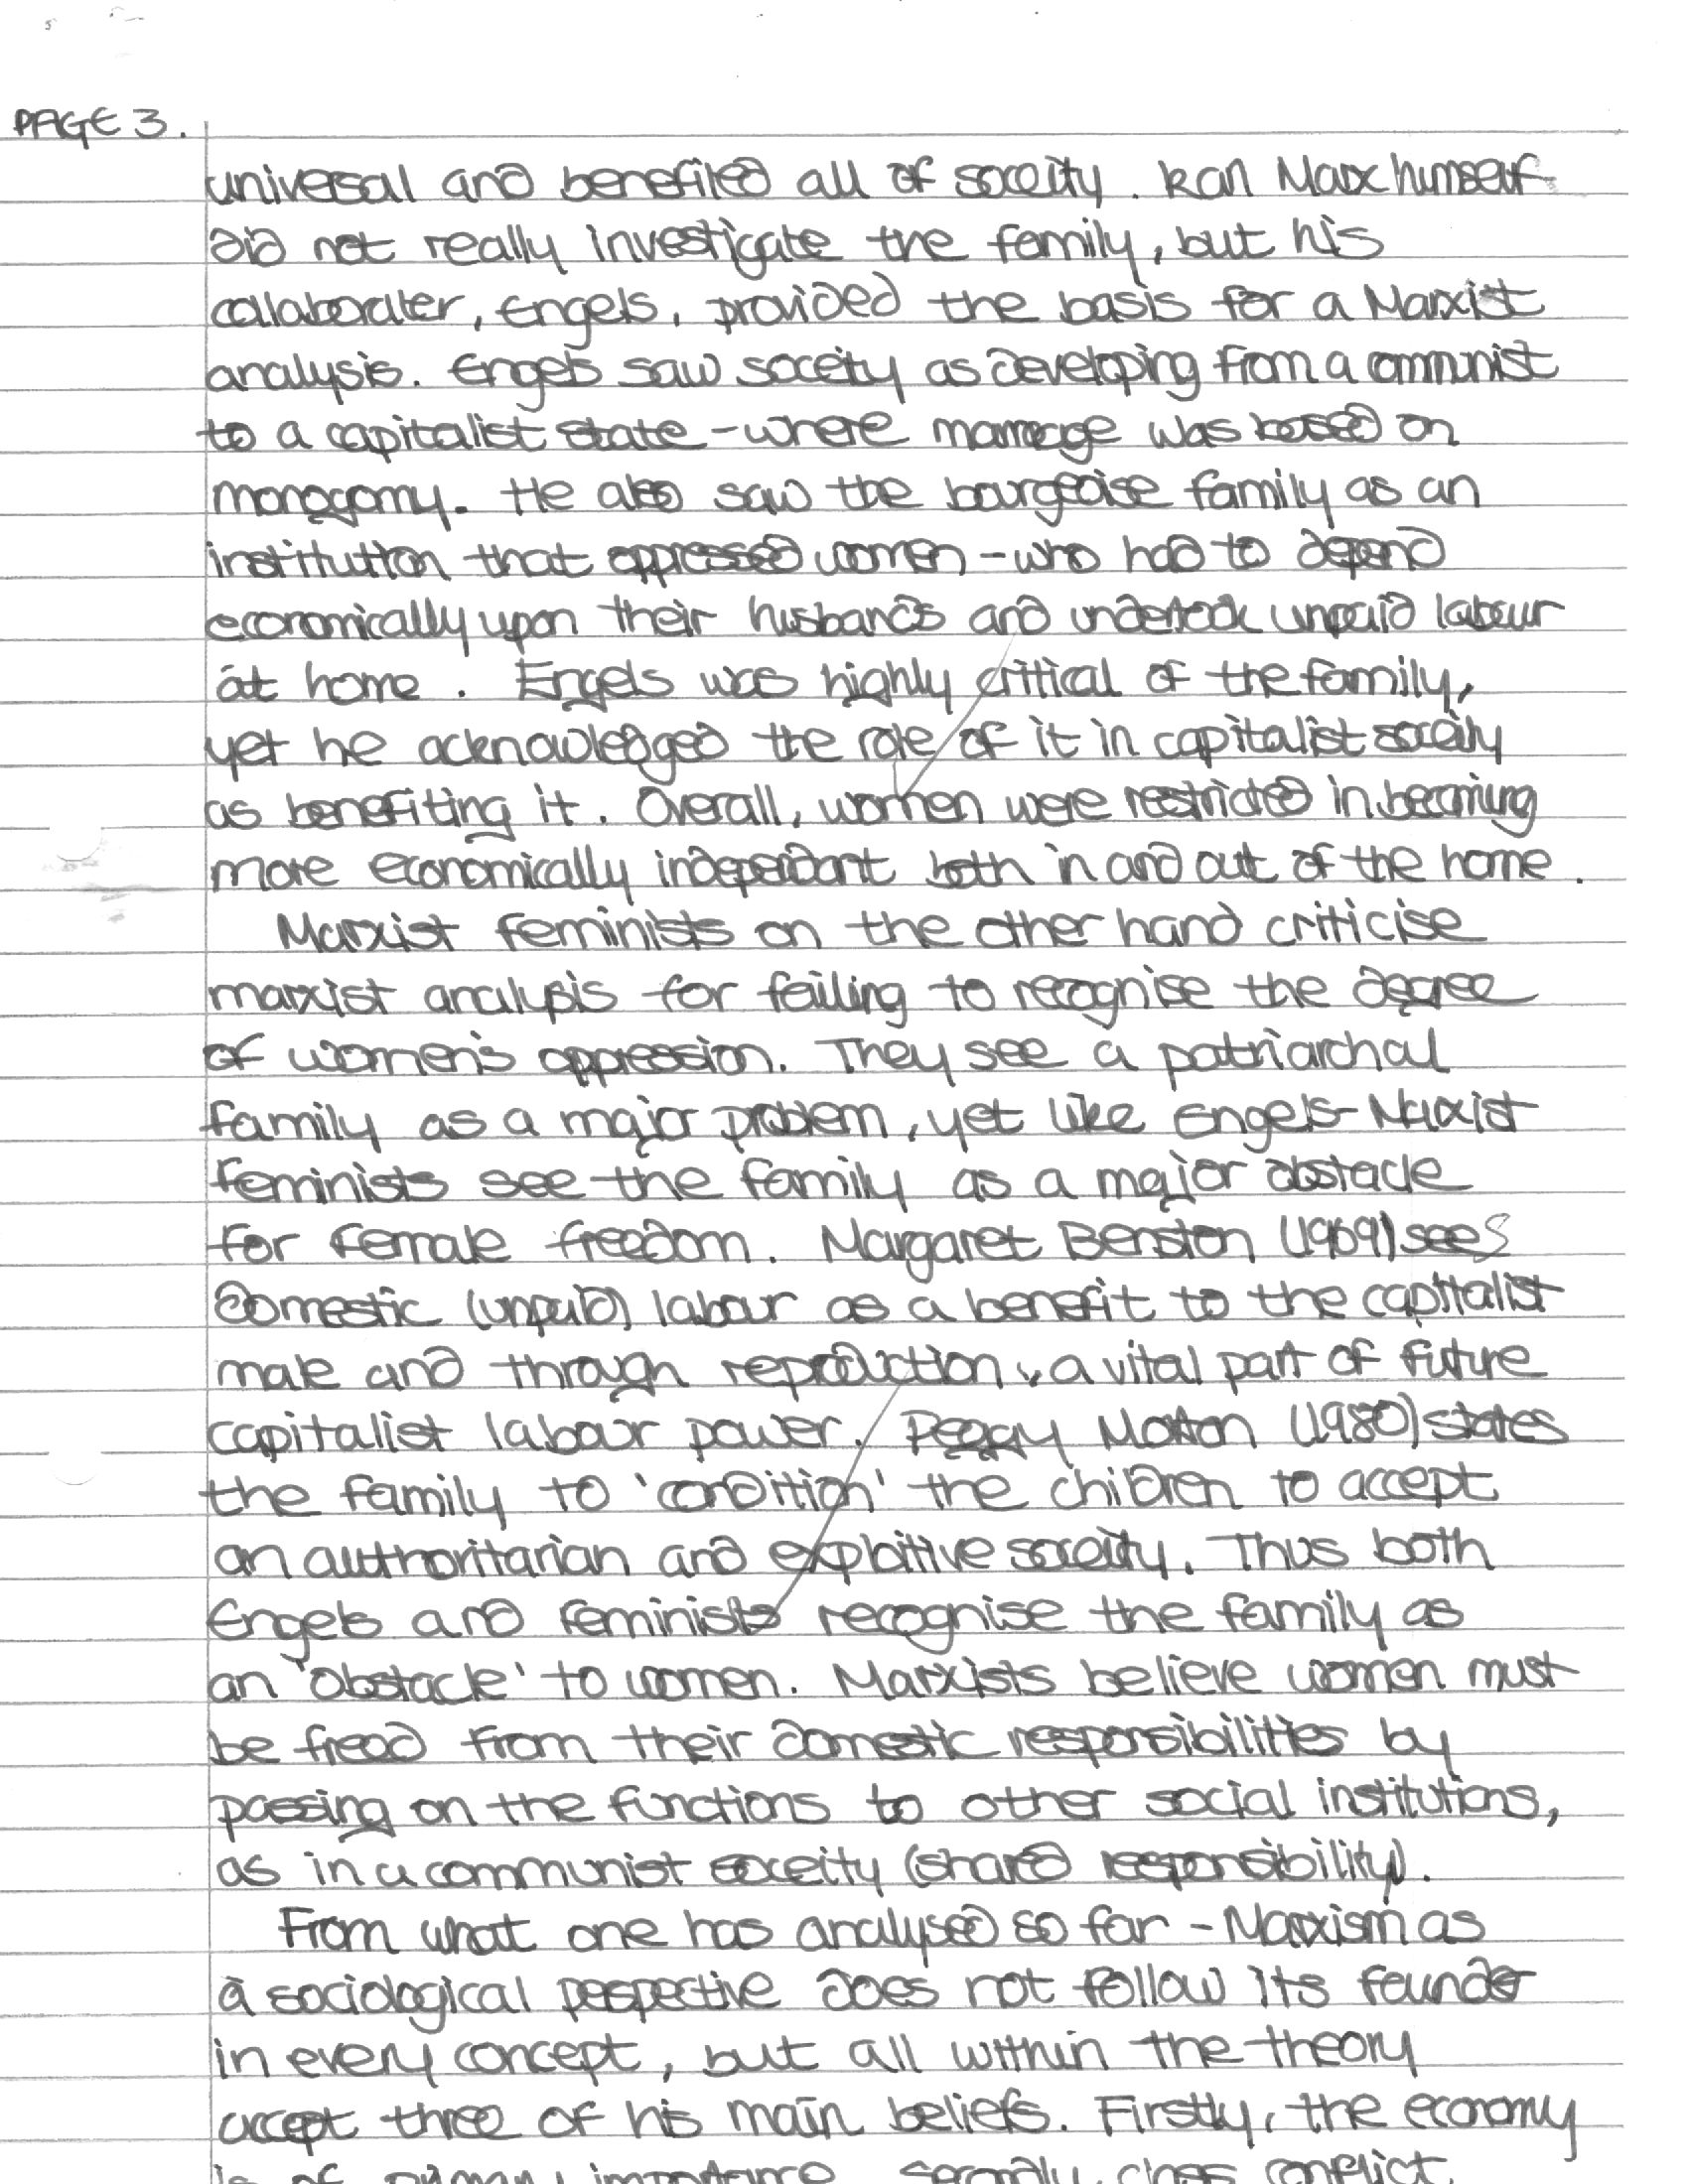 PAGE 3.
universal and benefited all of soceity. Karl Marx himself
did not really investigate the family, but his
collaborater, Engels, provided the basis for a Marxist
analysis. Engels saw soceity as developing from a communist
to a capitalist state - where marraege was based on
monogomy. He also saw the bourgeoise family as an
institution that oppressed women - who had to depend
economically upon their husbands and undertook unpaid labour
at home. Engels was highly critical of the family,
yet he acknowledged the role of it in capitalist soceity
as benefiting it. Overall, women were restricted in becoming
more economically independant both in and out of the home.
Marxist feminists on the other hand criticise
marxist analysis for failing to recognise the degree
of women's oppression. They see a patriarchal
family as a major problem, yet like Engels - Marxist
feminists see the family as a major obstacle
for female freedom. Margaret Benston (1969) sees
domestic (unpaid) labour as a benefit to the capitalist
male and through reproduction, a vital part of future
capitalist labour power. Peggy Morton (1980) states
the family to 'condition' the children to accept
an authoritarian and exploitive soceity. Thus both
Engels and feminists recognise the family as
an 'obstacle' to women. Marxists believe women must
be freed from their domestic responsibilities by
passing on the functions to other social institutions,
as in a communist soceity (shared responsibility).
From what one has analysed so far - Marxism as
a sociological perspective does not follow its founder
in every concept, but all within the theory
accept three of his main beliefs. Firstly, the economy
is of primary importance, secondly, class conflict